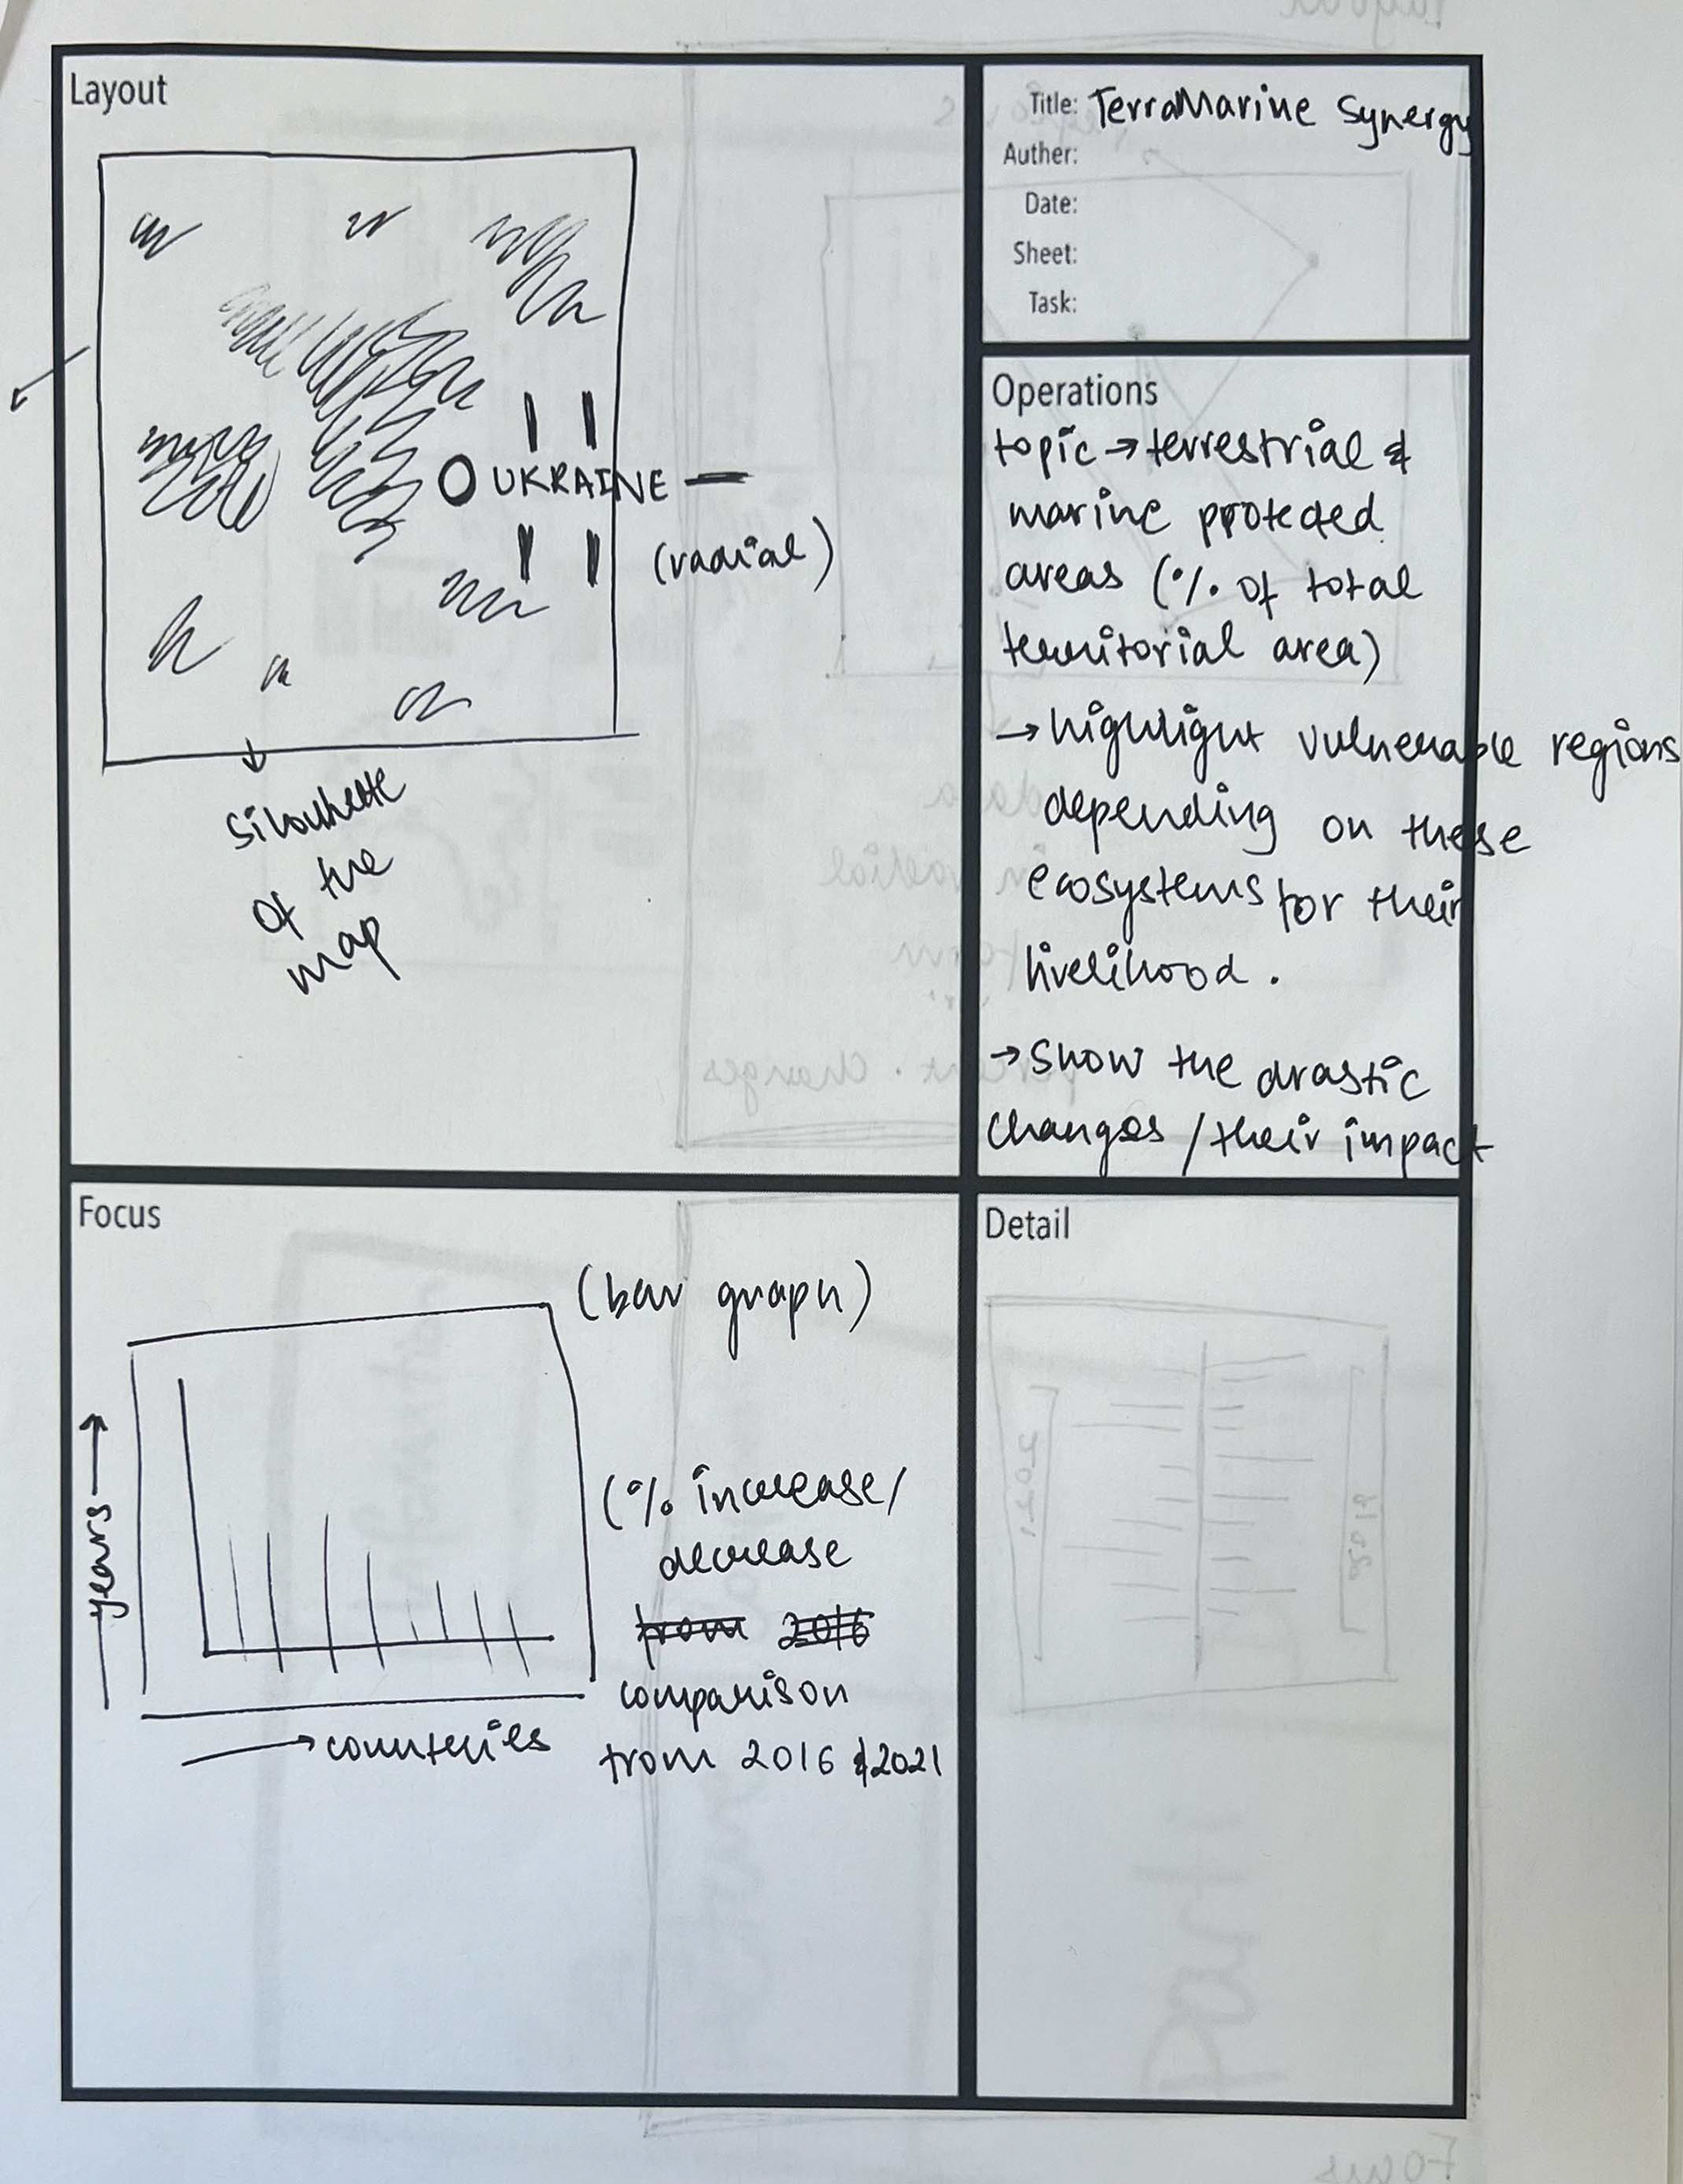 Layout
UKRAINE
(radial)
silouhette
of the
map
Title: TerraMarine Synergy
Auther:
Date:
Sheet:
Task:
Operations
topic → terrestrial &
marine protected
areas (% of total
territorial area)
→ highlight vulnerable regions
depending on these
ecosystems for their
livelihood.
→ Show the drastic
changes / their impact
Focus
(bar graph)
years →
(% increase/
decrease
from 2016
comparison
from 2016 & 2021
→ counteries
Detail